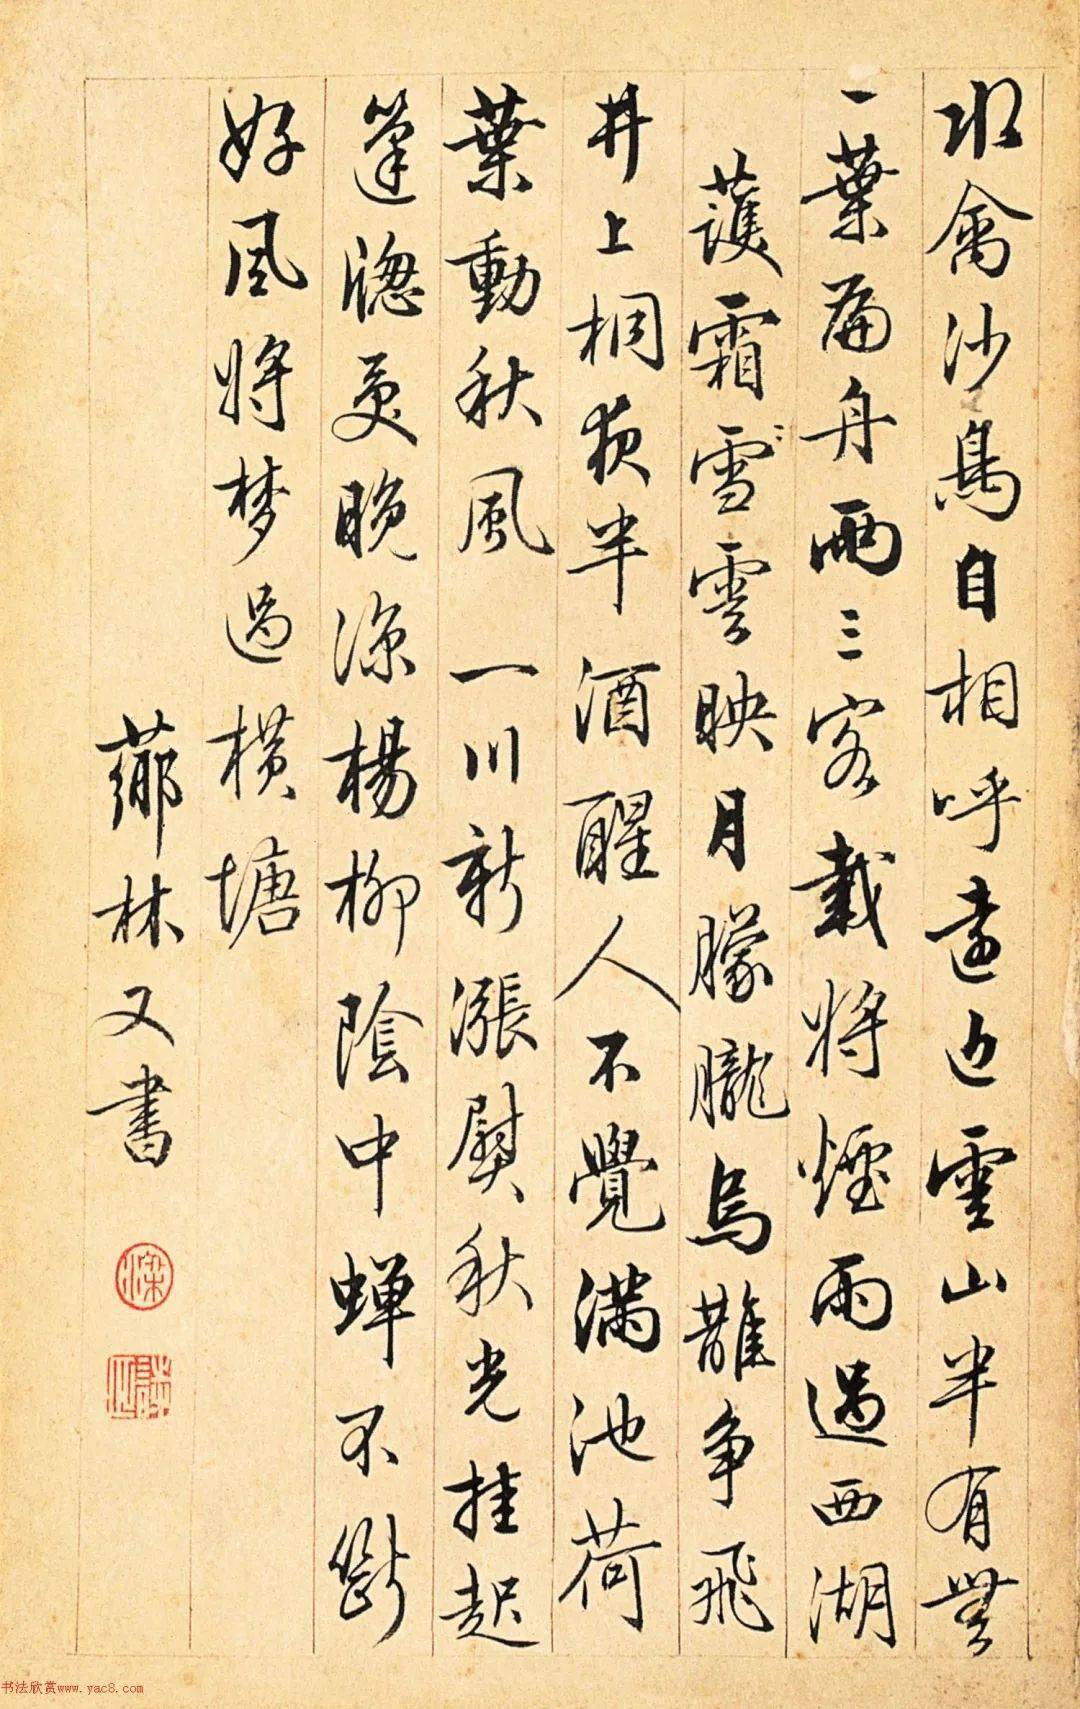 水禽沙鳥自相呼遠近雲山半有無
一葉扁舟兩三客載將煙雨過西湖
護霜雪雲映月朦朧烏鵲争飛
井上桐夜半酒醒人不覺滿池荷
葉動秋風 一川新漲熨秋光挂起
篷牕受晚涼楊柳陰中蝉不斷
好風将梦過横塘
薌林又書
书法欣赏www.yac8.com